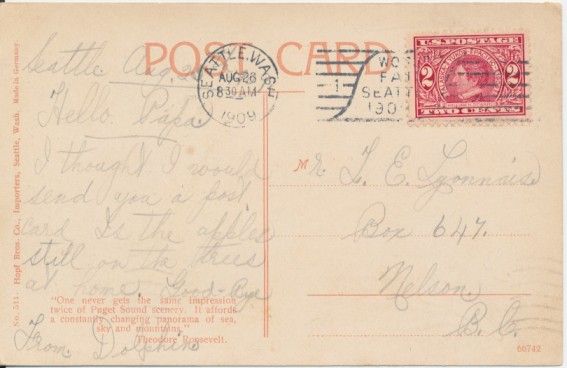 POST CARD
Seattle Aug
SEATTLE, WASH.
AUG 26
8 30 AM
1909
1
WO
FAI
SEATT
190
U.S. POSTAGE
2 2
TWO CENTS
Hello Papa
I thought I would
send you a post
card Is the apples
still on the trees
at home. Good-Bye
From Dolphin
"One never gets the same impression
twice of Puget Sound scenery. It affords
a constantly changing panorama of sea,
sky and mountains."
Theodore Roosevelt.
Mr L. E. Lyonnais
Box 647.
Nelson
B.C.
No. 511. Hopf Bros. Co., Importers, Seattle, Wash. Made in Germany
60742